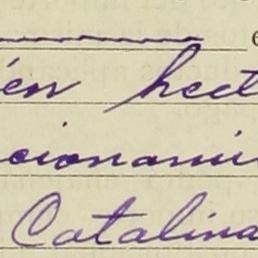 én hect
cionami
Catalina